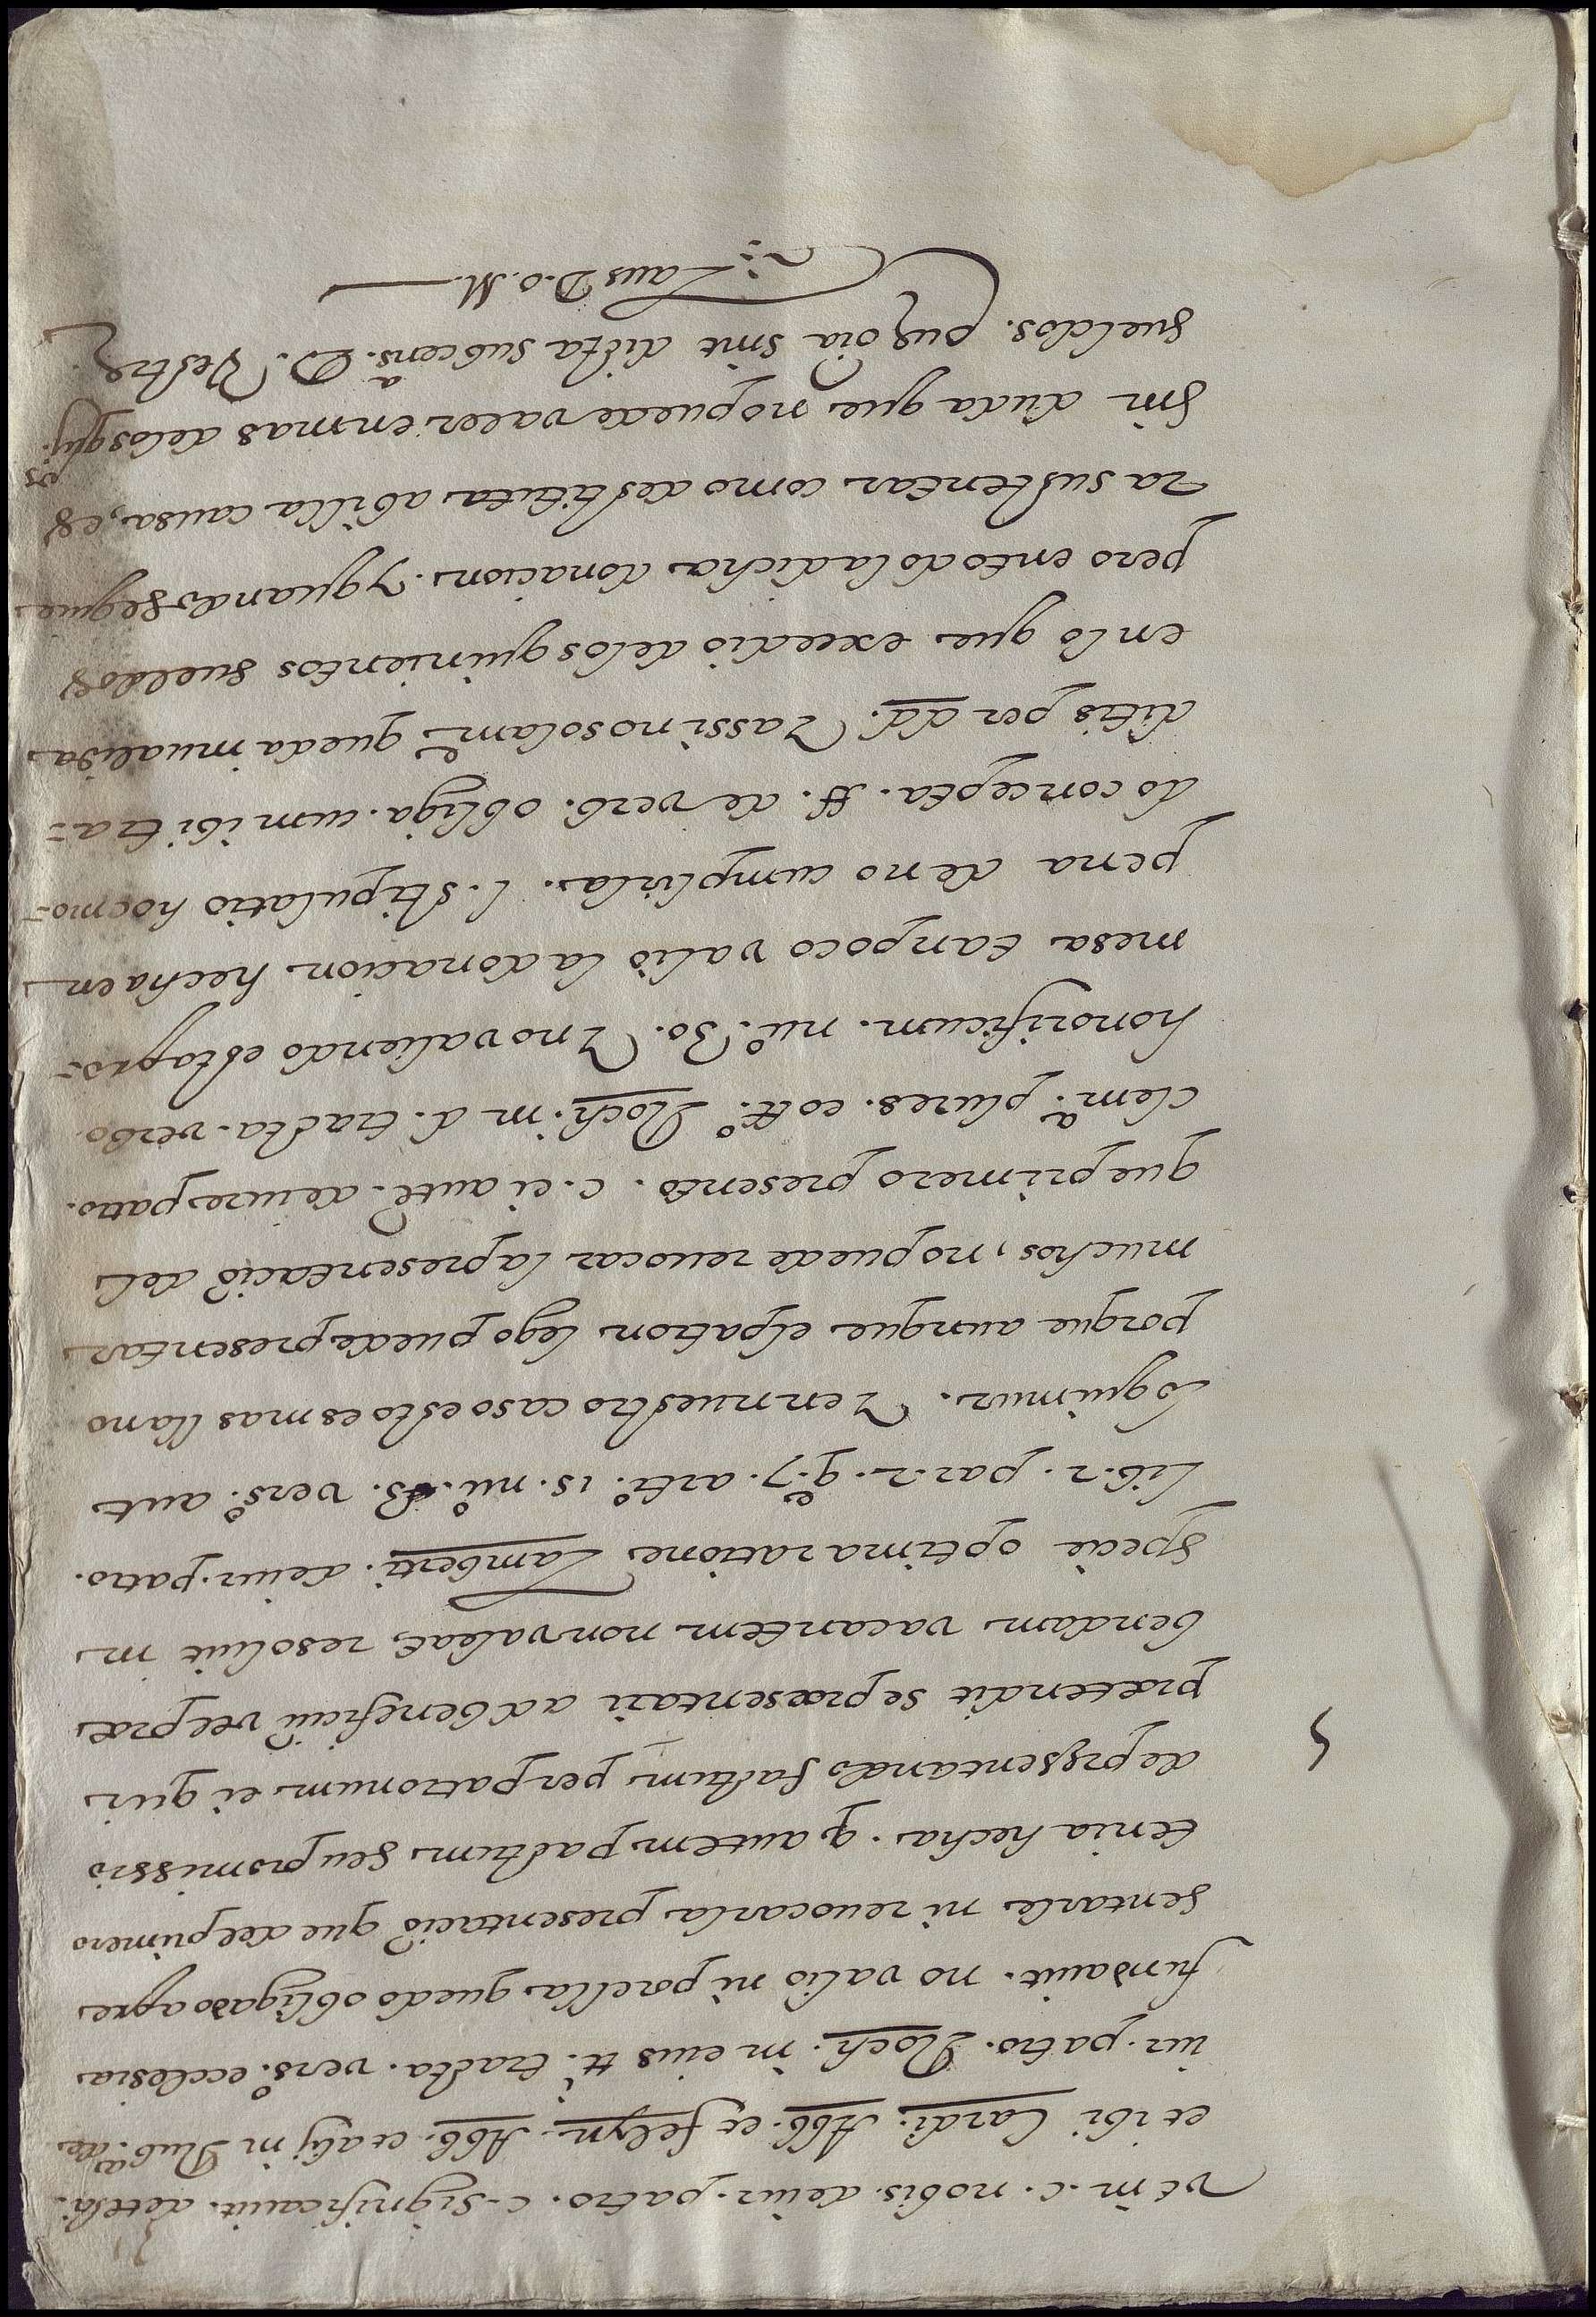 vt in. c. nobis. de iur. patro. c. significauit. de testi.
et ibi Cardi. Abb. et felyn. Abb. et alij in Rub.ca de
iur. patro. Roch. in eius tt. tracta. verso. ecclesia
fundauit. no valio ni por ella quedo obligado a pre
sentarle ni reuocar la presentaciõ que del primero
tenia hecha. q autem pactum seu promissio
de presentando factum per patronum ei qui
prætendit se præsentari ad beneficiũ vel præ
bendam vacantem non valeat, resoluit in
specie optima ratione Lamberti. de iur. patro.
lib. 2. par. 2. q.e 7. arti.o 15. nu.o 43. vers.o aut
loquimur. Y en nuestro caso esto es mas llano
porque aunque el patron lego puede presentar
muchos, no puede reuocar la presentaciõ del
que primero presentò. c. ei autẽ. de iure patro.
clem.a plures. eo tt.o Roch. in d. tracta. verbo.
honorificum. nu.o 30. Y no valiendo esta pro=
mesa tanpoco valiò la donacion hecha en
pena de no cumplirla. l. stipulatio hoc mo=
do concepta. ff. de verb. obliga. cum ibi tra=
ditis per dd. Y assi no solam.e queda inualida
en lo que excediò de los quinientos sueldos
pero en todo la dicha donacion. Y quando se que
ra sustentar como destituta ab illa causa, es
sin duda que no puede valer en mas de los quij.os
sueldos. oia sint dicta sub cens.a D. Vestrę
Laus D. O. M.